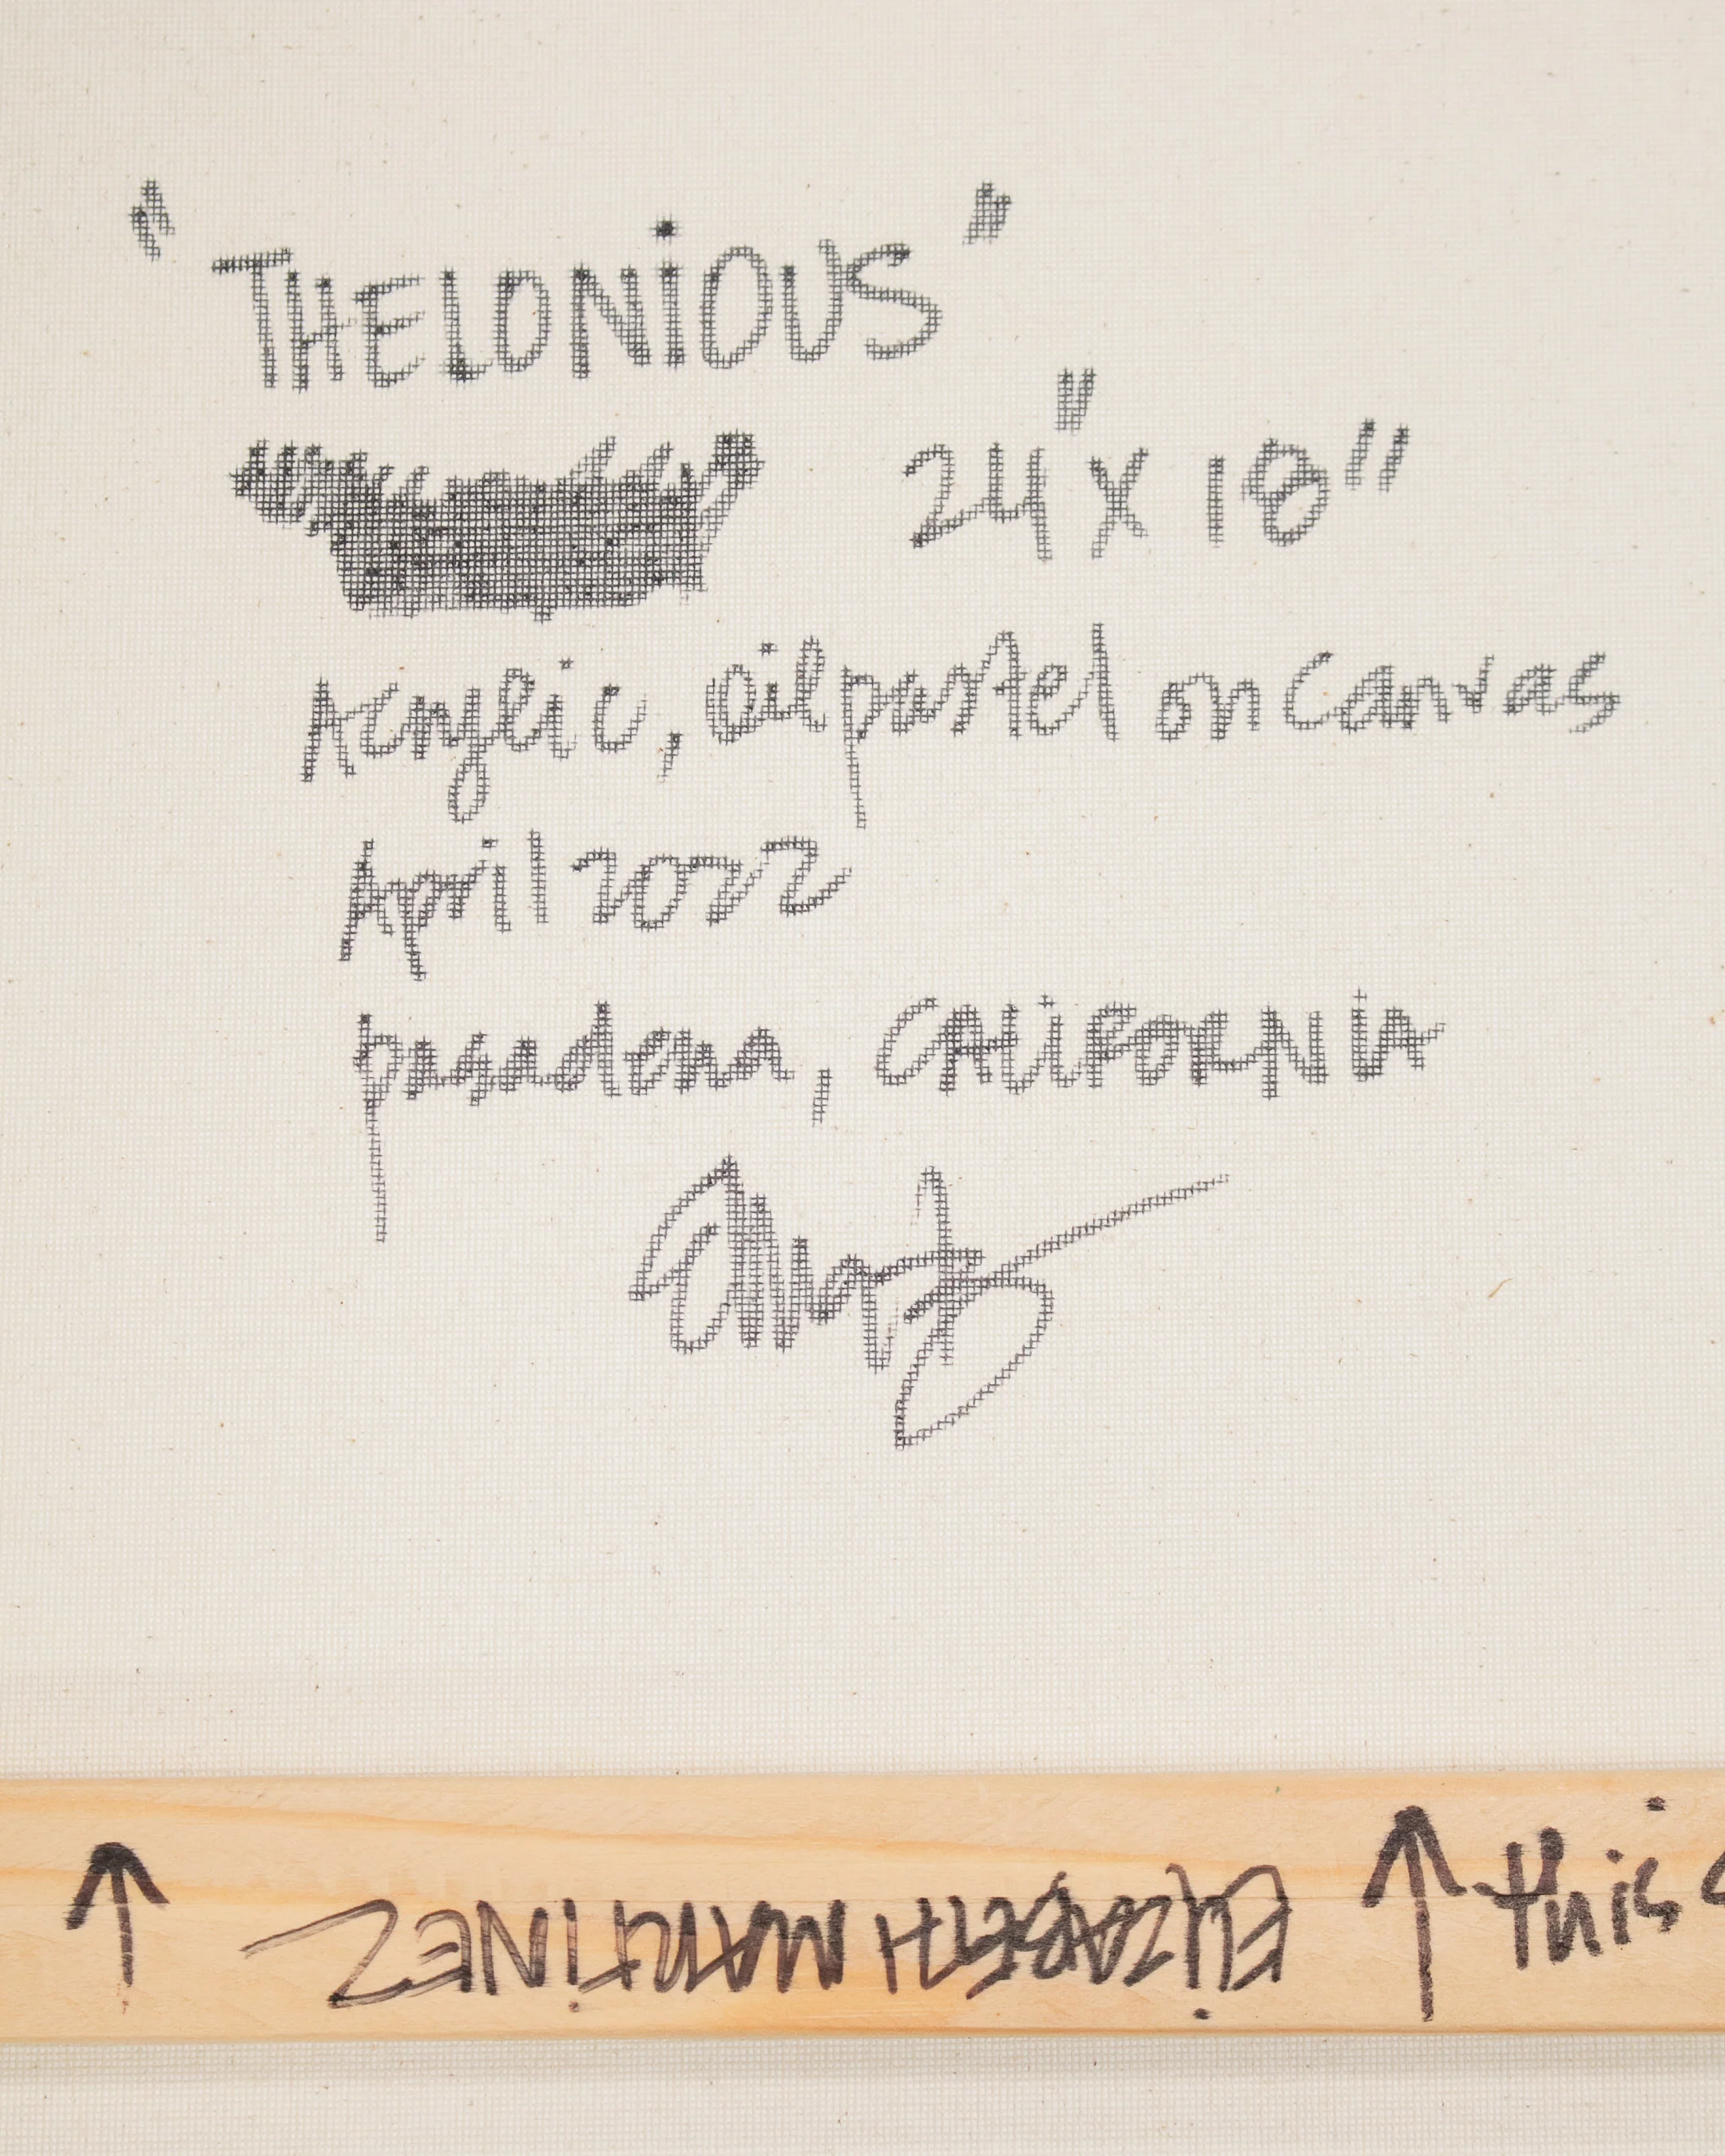 "THELONiOUS"
24" X 18"
Acrylic, oil pastel on canvas
April 2022
pasadena, CALiFORNIA
↑ ELiZABETH MARTiNEZ ↑ this